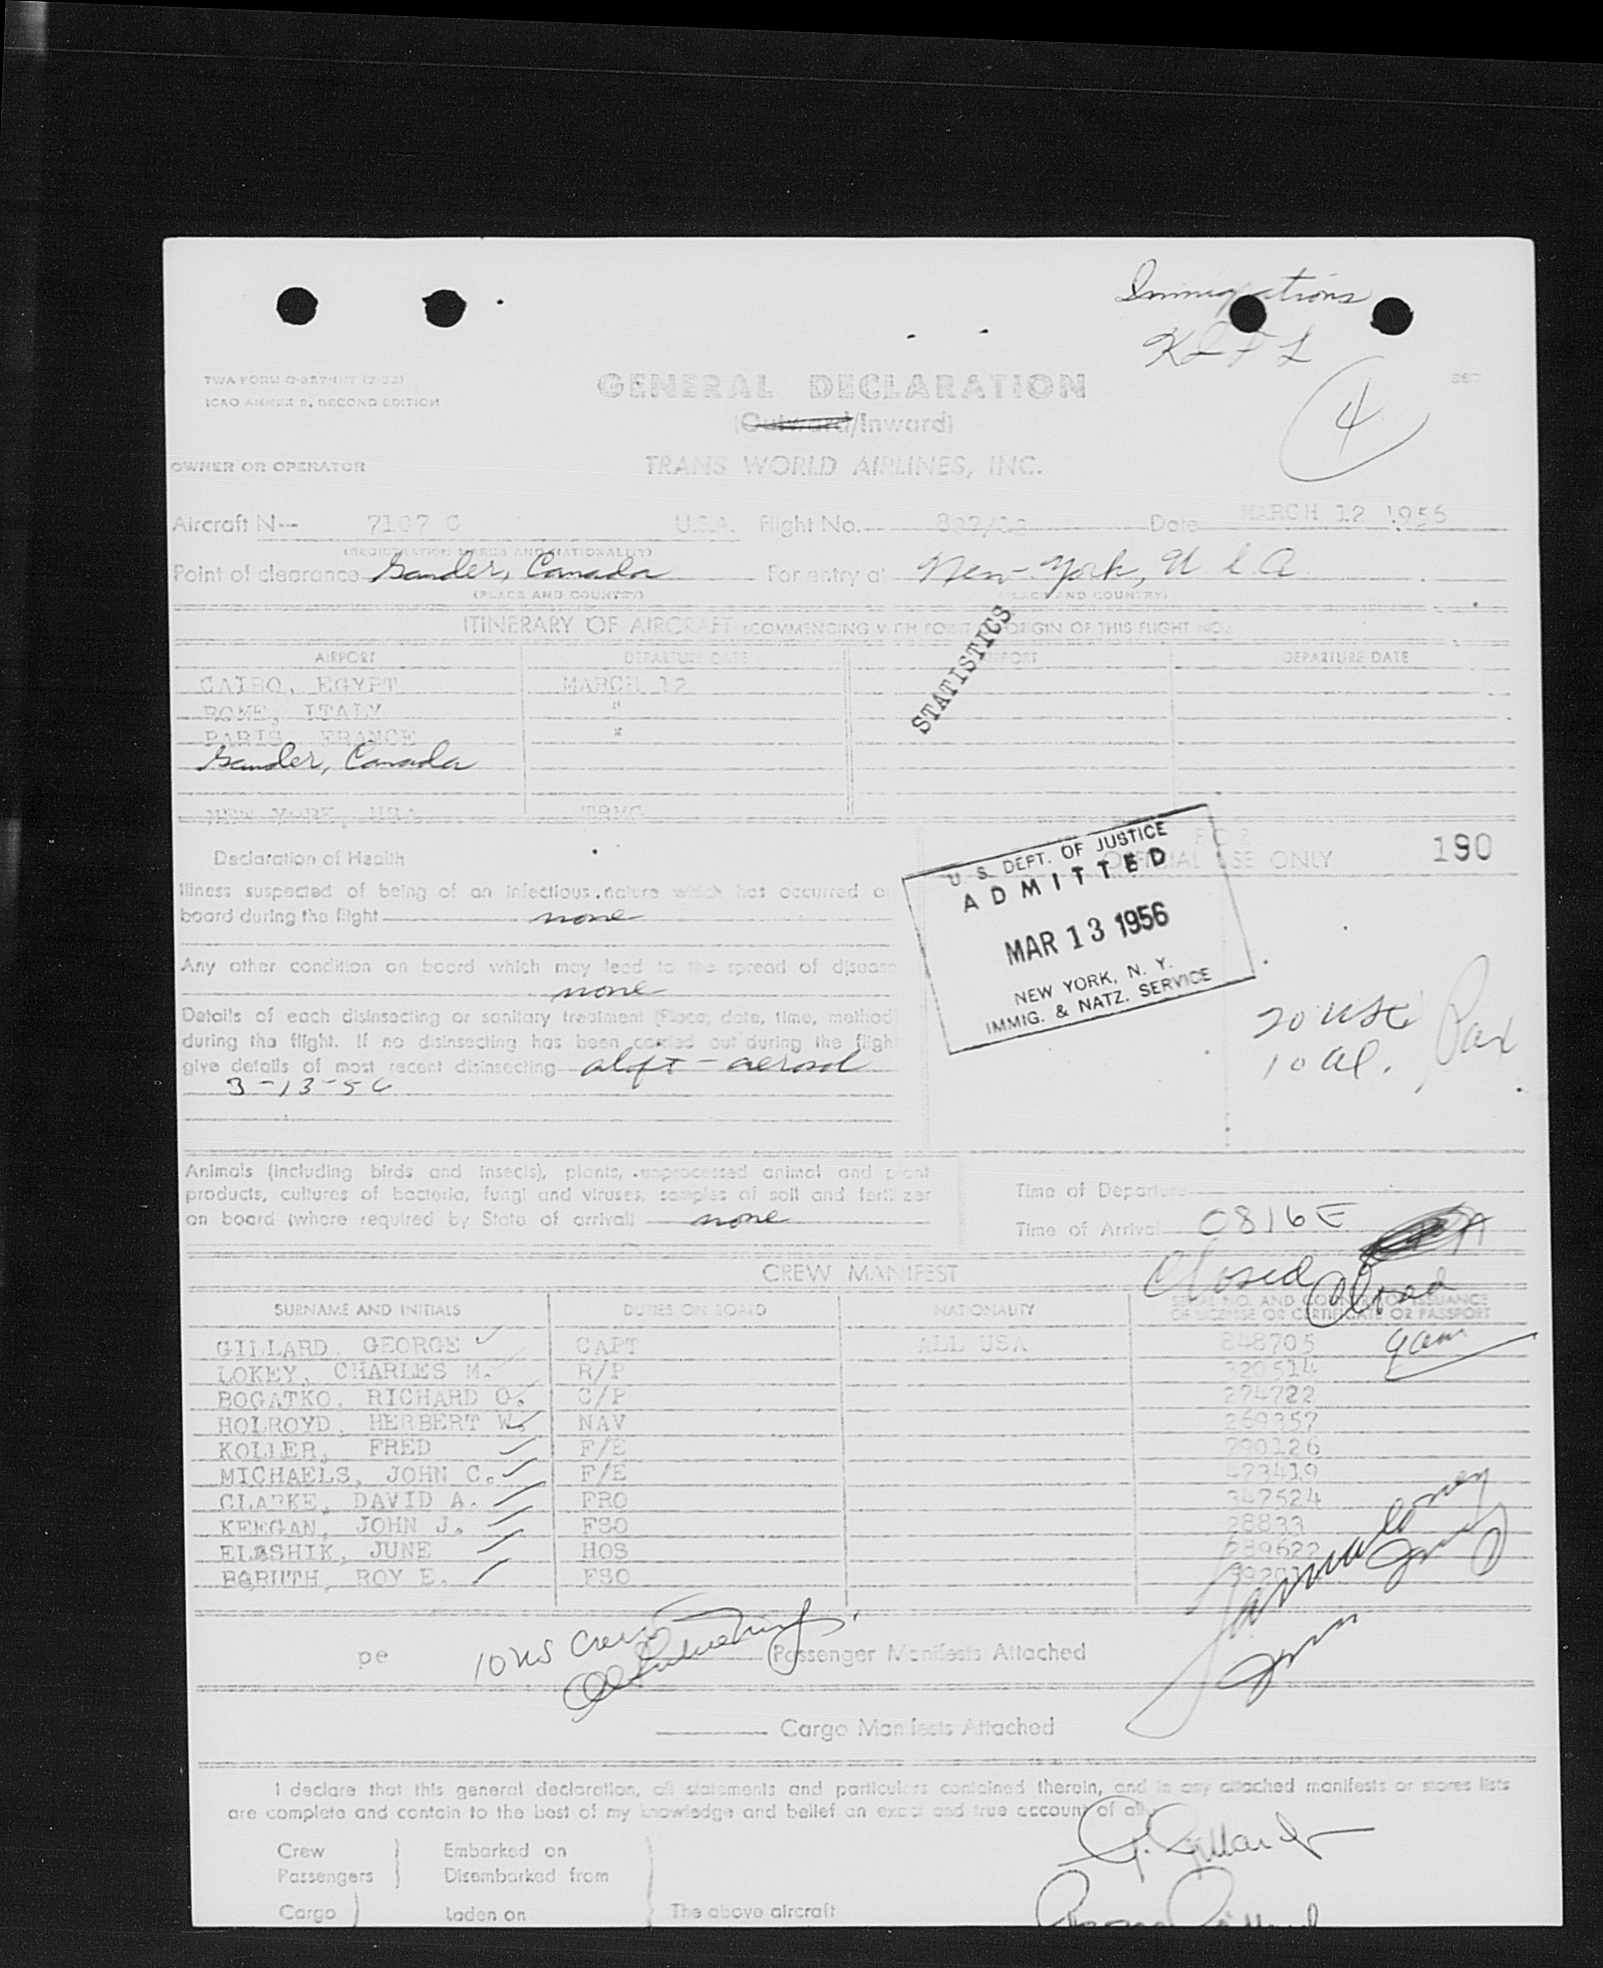 Immigrations
4
GENERAL DECLARATION
ICAO ANNEX 9, SECOND EDITION
(Outward/Inward)
OWNER OR OPERATOR TRANS WORLD AIRLINES, INC.
Aircraft N-- 7107 C U.S.A. Flight No. Date MARCH 12 1956
(REGISTRATION MARKS AND NATIONALITY)
Point of clearance Gander, Canada For entry at New York, U S A
(PLACE AND COUNTRY) (PLACE AND COUNTRY)
ITINERARY OF AIRCRAFT (COMMENCING WITH POINT OF ORIGIN OF THIS FLIGHT NO.
STATISTICS
AIRPORT DEPARTURE DATE AIRPORT DEPARTURE DATE
CAIRO, EGYPT MARCH 12
ROME, ITALY "
PARIS FRANCE "
Gander, Canada
NEW YORK, USA TRMG
Declaration of Health
OFFICIAL USE ONLY 190
Illness suspected of being of an infectious nature which has occurred o
board during the flight none
Any other condition on board which may lead to the spread of disease
none
Details of each disinsecting or sanitary treatment (Place, date, time, method
during the flight. If no disinsecting has been carried out during the fligh
give details of most recent disinsecting aloft - aerosol
3-13-56
U. S. DEPT. OF JUSTICE
ADMITTED
MAR 13 1956
NEW YORK, N. Y.
IMMIG. & NATZ. SERVICE
20 USC Pax
10 al.
Animals (including birds and insects), plants, unprocessed animal and plant
products, cultures of bacteria, fungi and viruses, samples of soil and fertilizer
on board (where required by State of arrival) none
Time of Departure
Time of Arrival 0816E
Closed Closed
CREW MANIFEST
SURNAME AND INITIALS DUTIES ON BOARD NATIONALITY SERIAL NO. AND COUNTRY OF ISSUANCE
OF LICENSE OR CERTIFICATE OR PASSPORT
GILLARD, GEORGE CAPT ALL USA 848705 9am
LOKEY, CHARLES M. R/P 320514
BOGATKO, RICHARD O. C/P 274722
HOLROYD, HERBERT W. NAV 269357
KOLLER, FRED F/E 790126
MICHAELS, JOHN C. F/E 473419
CLARKE, DAVID A. FRO 347524
KEEGAN, JOHN J. FSO 28833
ELASHIK, JUNE HOS 289622
BARUTH, ROY E. FSO
pe 10 US Crew Passenger Manifests Attached
Cargo Manifests Attached
I declare that this general declaration, all statements and particulars contained therein, and in any attached manifests or stores lists
are complete and contain to the best of my knowledge and belief an exact and true account of all
G. Gillard
Crew Embarked on
Passengers Disembarked from
Cargo Laden on The above aircraft
George Gillard